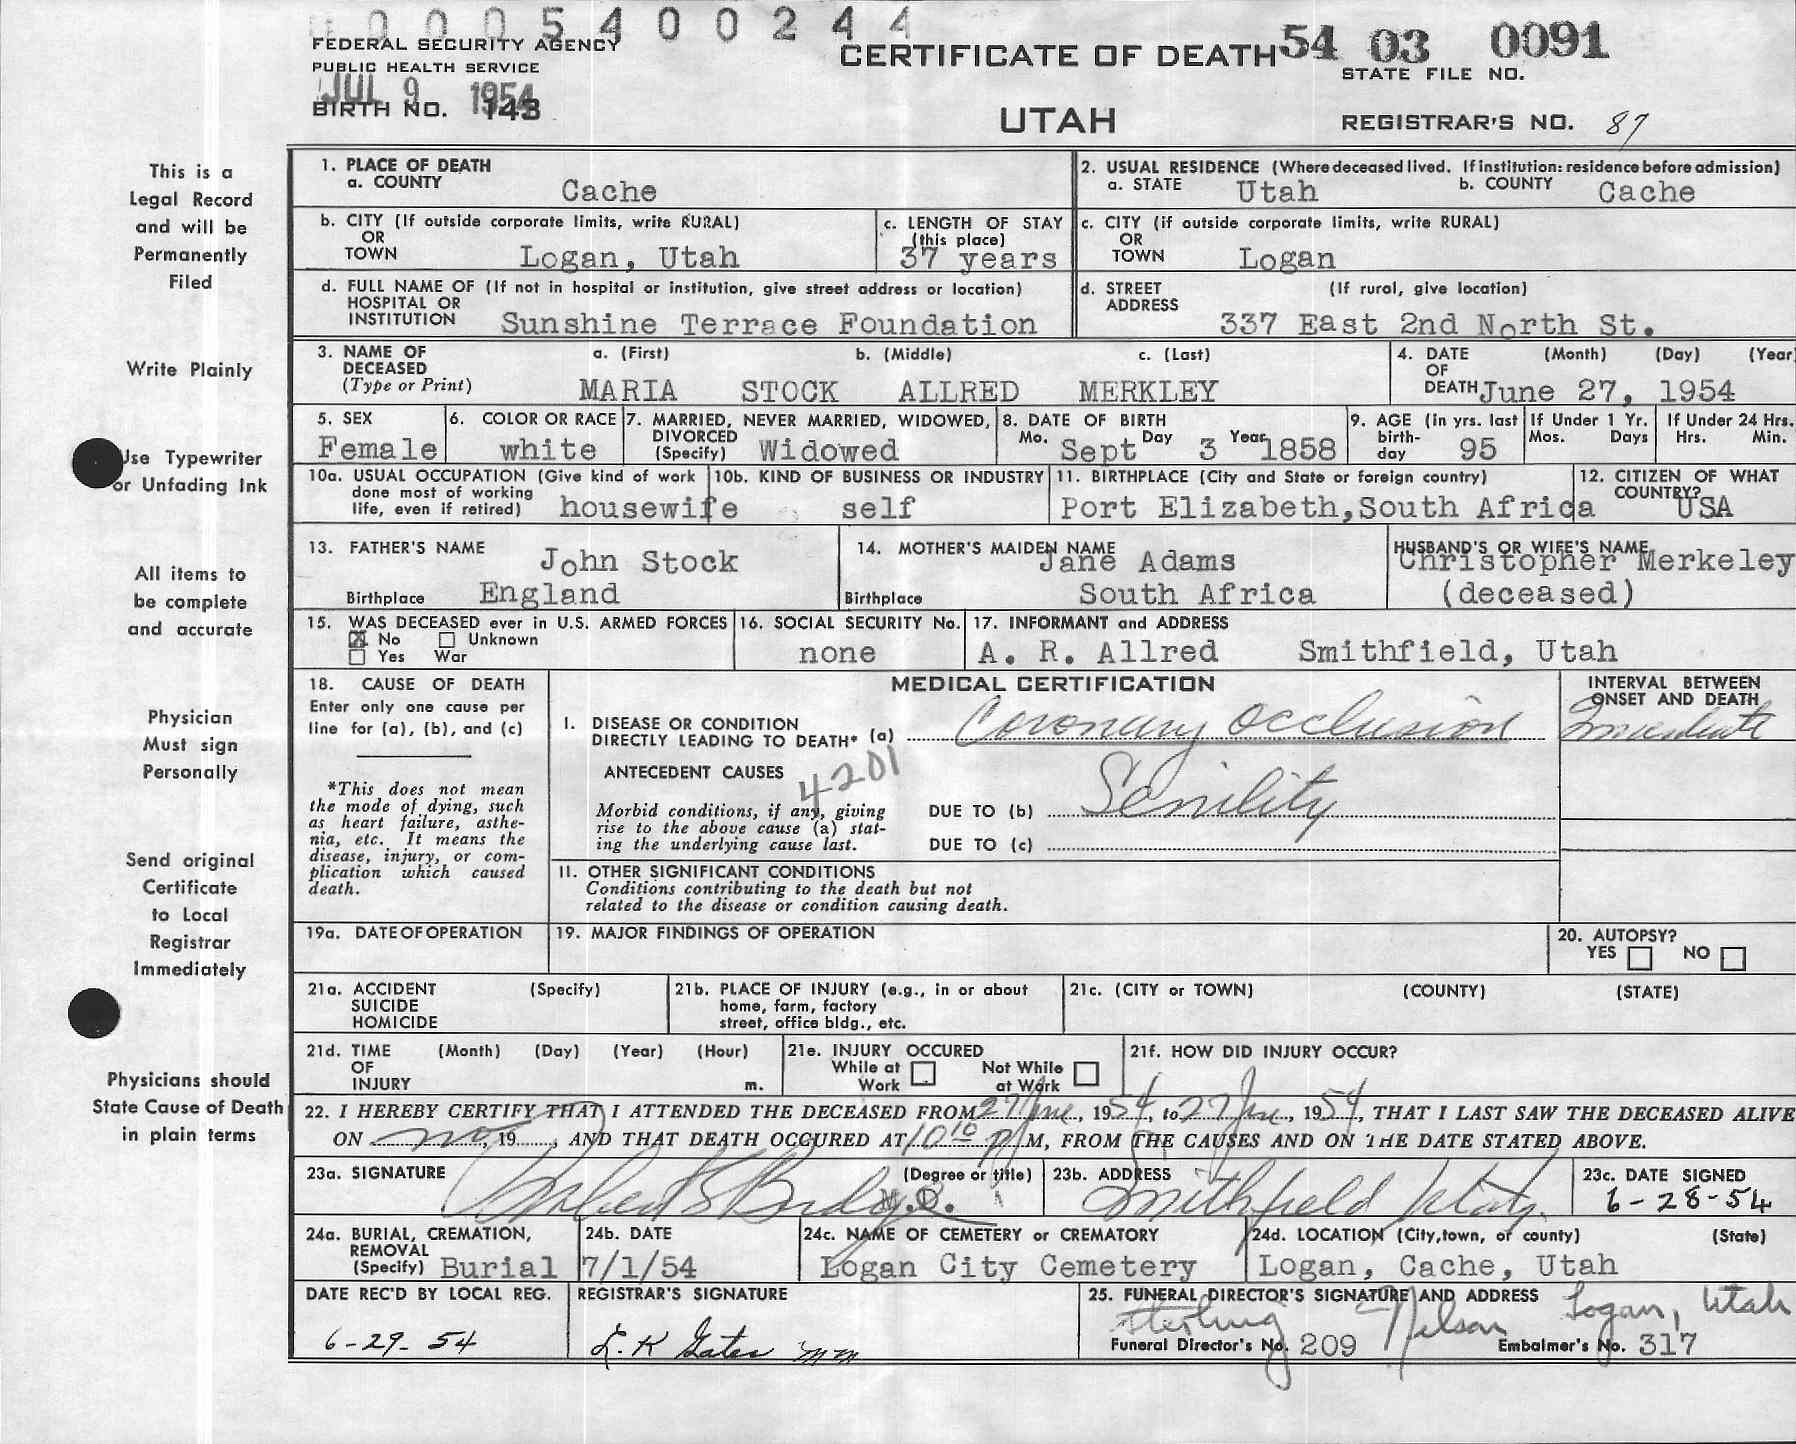 0005400244
FEDERAL SECURITY AGENCY
PUBLIC HEALTH SERVICE
JUL 9 1954
BIRTH NO. 143
CERTIFICATE OF DEATH
UTAH
54 03 0091
STATE FILE NO.
REGISTRAR'S NO. 87
This is a
Legal Record
and will be
Permanently
Filed
Write Plainly
Use Typewriter
or Unfading Ink
All items to
be complete
and accurate
Physician
Must sign
Personally
Send original
Certificate
to Local
Registrar
Immediately
Physicians should
State Cause of Death
in plain terms
1. PLACE OF DEATH
a. COUNTY Cache
2. USUAL RESIDENCE (Where deceased lived. If institution: residence before admission)
a. STATE Utah b. COUNTY Cache
b. CITY (If outside corporate limits, write RURAL)
OR
TOWN Logan, Utah
c. LENGTH OF STAY
(this place)
37 years
c. CITY (if outside corporate limits, write RURAL)
OR
TOWN Logan
d. FULL NAME OF (If not in hospital or institution, give street address or location)
HOSPITAL OR
INSTITUTION Sunshine Terrace Foundation
d. STREET (If rural, give location)
ADDRESS
337 East 2nd North St.
3. NAME OF a. (First) b. (Middle) c. (Last)
DECEASED
(Type or Print) MARIA STOCK ALLRED MERKLEY
4. DATE (Month) (Day) (Year
OF
DEATH June 27, 1954
5. SEX
Female
6. COLOR OR RACE
white
7. MARRIED, NEVER MARRIED, WIDOWED,
DIVORCED
(Specify) Widowed
8. DATE OF BIRTH
Mo. Sept Day 3 Year 1858
9. AGE (in yrs. last
birth-
day 95
If Under 1 Yr.
Mos. Days
If Under 24 Hrs.
Hrs. Min.
10a. USUAL OCCUPATION (Give kind of work
done most of working
life, even if retired) housewife
10b. KIND OF BUSINESS OR INDUSTRY
self
11. BIRTHPLACE (City and State or foreign country)
Port Elizabeth, South Africa
12. CITIZEN OF WHAT
COUNTRY?
USA
13. FATHER'S NAME John Stock
Birthplace England
14. MOTHER'S MAIDEN NAME
Jane Adams
Birthplace South Africa
HUSBAND'S OR WIFE'S NAME
Christopher Merkeley
(deceased)
15. WAS DECEASED ever in U.S. ARMED FORCES
No Unknown
Yes War
16. SOCIAL SECURITY No.
none
17. INFORMANT and ADDRESS
A. R. Allred Smithfield, Utah
18. CAUSE OF DEATH
Enter only one cause per
line for (a), (b), and (c)
*This does not mean
the mode of dying, such
as heart failure, asthe-
nia, etc. It means the
disease, injury, or com-
plication which caused
death.
MEDICAL CERTIFICATION
I. DISEASE OR CONDITION
DIRECTLY LEADING TO DEATH* (a) Coronary Occlusion
ANTECEDENT CAUSES
4201
Morbid conditions, if any, giving
rise to the above cause (a) stat-
ing the underlying cause last.
DUE TO (b) Senility
DUE TO (c)
INTERVAL BETWEEN
ONSET AND DEATH
Immediate
II. OTHER SIGNIFICANT CONDITIONS
Conditions contributing to the death but not
related to the disease or condition causing death.
19a. DATE OF OPERATION
19. MAJOR FINDINGS OF OPERATION
20. AUTOPSY?
YES NO
21a. ACCIDENT (Specify)
SUICIDE
HOMICIDE
21b. PLACE OF INJURY (e.g., in or about
home, farm, factory
street, office bldg., etc.
21c. (CITY or TOWN) (COUNTY) (STATE)
21d. TIME (Month) (Day) (Year) (Hour)
OF
INJURY m.
21e. INJURY OCCURED
While at Not While
Work at Work
21f. HOW DID INJURY OCCUR?
22. I HEREBY CERTIFY THAT I ATTENDED THE DECEASED FROM 27 June, 1954, to 27 June, 1954, THAT I LAST SAW THE DECEASED ALIVE
ON no, 19......, AND THAT DEATH OCCURED AT 10 10 P M, FROM THE CAUSES AND ON THE DATE STATED ABOVE.
23a. SIGNATURE (Degree or title)
M.D.
23b. ADDRESS
Smithfield Utah.
23c. DATE SIGNED
6-28-54
24a. BURIAL, CREMATION,
REMOVAL
(Specify) Burial
24b. DATE
7/1/54
24c. NAME OF CEMETERY or CREMATORY
Logan City Cemetery
24d. LOCATION (City, town, or county) (State)
Logan, Cache, Utah
DATE REC'D BY LOCAL REG.
6-29-54
REGISTRAR'S SIGNATURE
L. K Gates mm
25. FUNERAL DIRECTOR'S SIGNATURE AND ADDRESS Logan, Utah
Sterling Nelson
Funeral Director's No. 209 Embalmer's No. 317